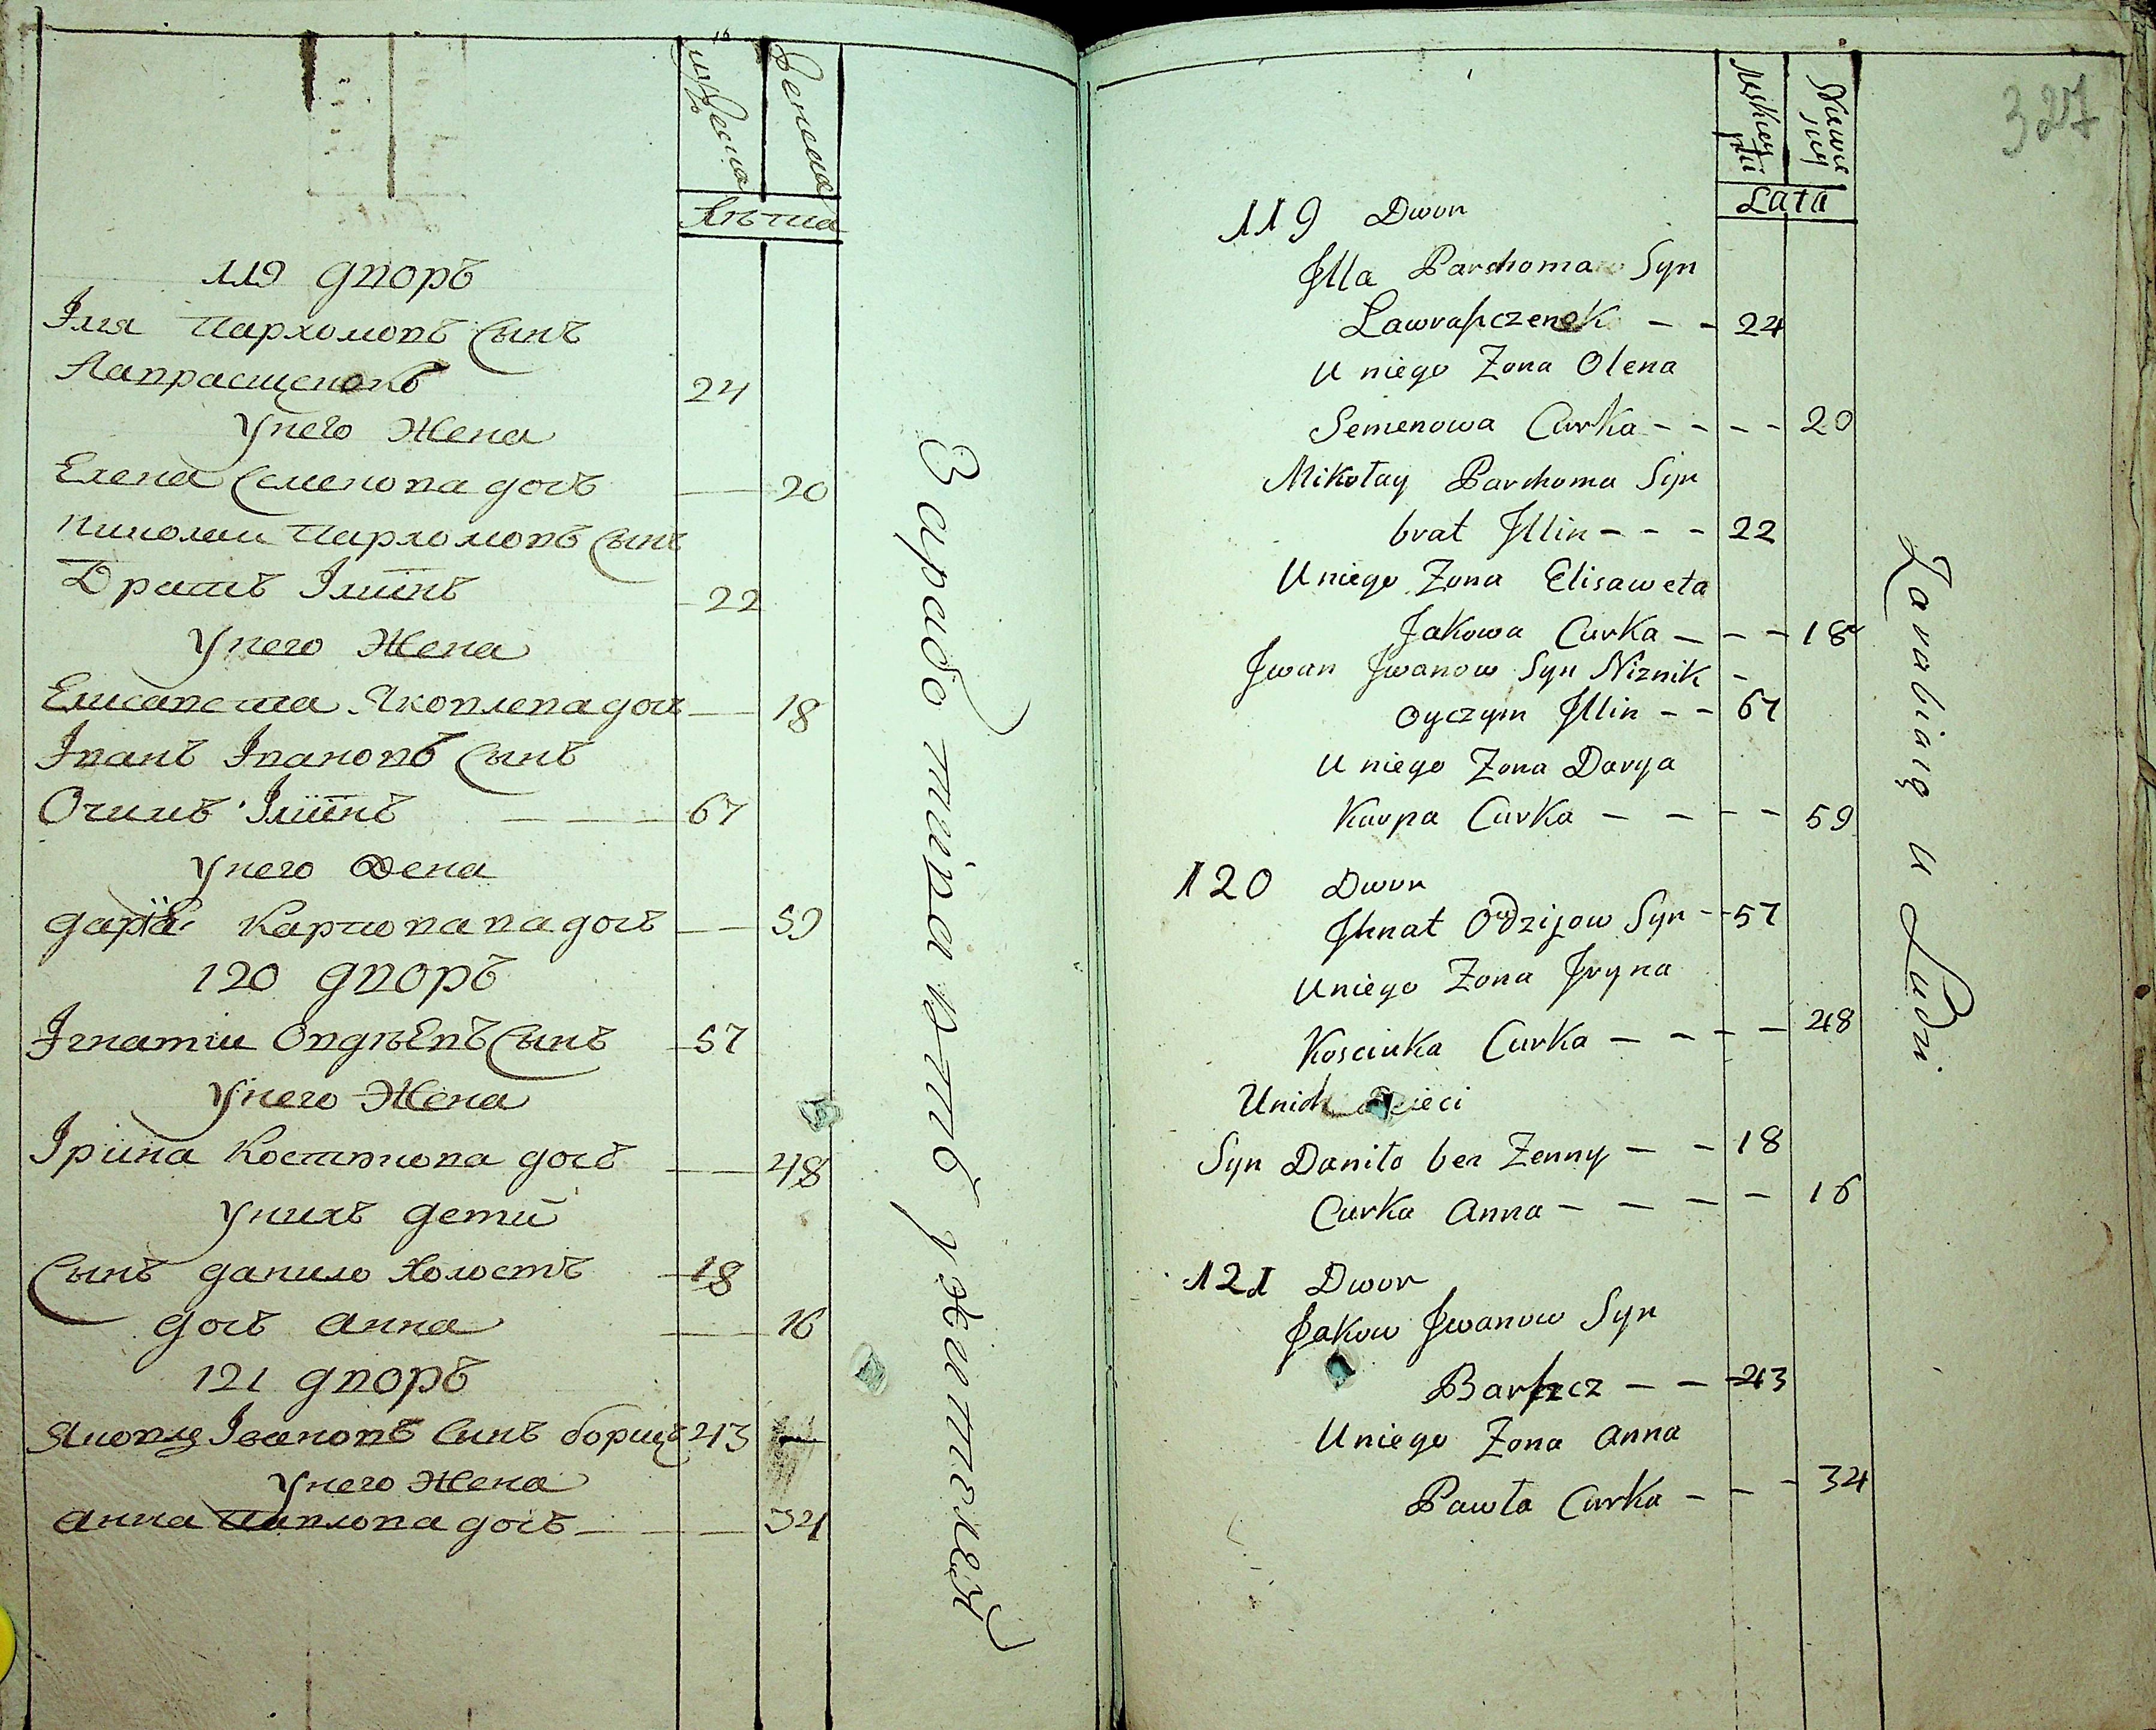 мужеска
женска
лѣта
119 дворъ
Iля Пархомовъ сынъ
Лапрасщенокъ
24
у него жена
Елена Семенова дочь
20
Николаи Пархомовъ сынъ
братъ Iлиинъ
22
у него жена
Елисавета Яковлева дочь
18
Iванъ Iвановъ сынъ
Очимъ Iлиинъ
67
у него жена
дарїя Карпова дочь
59
120 дворъ
Iгнатіи Овдѣевъ сынъ
57
у него жена
Iрина Костатинова дочь
48
у нихъ дети
сынъ данило холостъ
18
дочь анна
16
121 дворъ
Яковъ Iвановъ синъ борщъ
43
у него жена
анна Павлова дочь
34
Заработываютъ у жителей
327
Lata
119 Dwor
Jlla Parchoma Syn
Lawraszczenok - - 24
U niego Zona Olena
Semenowa Curka - - - - 20
Mikołay Parchoma Syn
brat Jllin - - - 22
U niego Zona Elisaweta
Jakowa Curka - - - 18
Jwan Jwanow Syn Niznik -
Oyczym Jllin - - 67
U niego Zona Darya
Karpa Curka - - - - 59
120 Dwor
Jhnat Owdzijow Syn - - 57
U niego Zona Jryna
Kosciuka Curka - - - - 48
U nich dzieci
Syn Daniło bez Zenny - - 18
Curka Anna - - - - 16
121 Dwor
Jakow Jwanow Syn
Barszcz - - - 43
U niego Zona Anna
Pawła Curka - - - 34
Zarabiaią u Ludzi